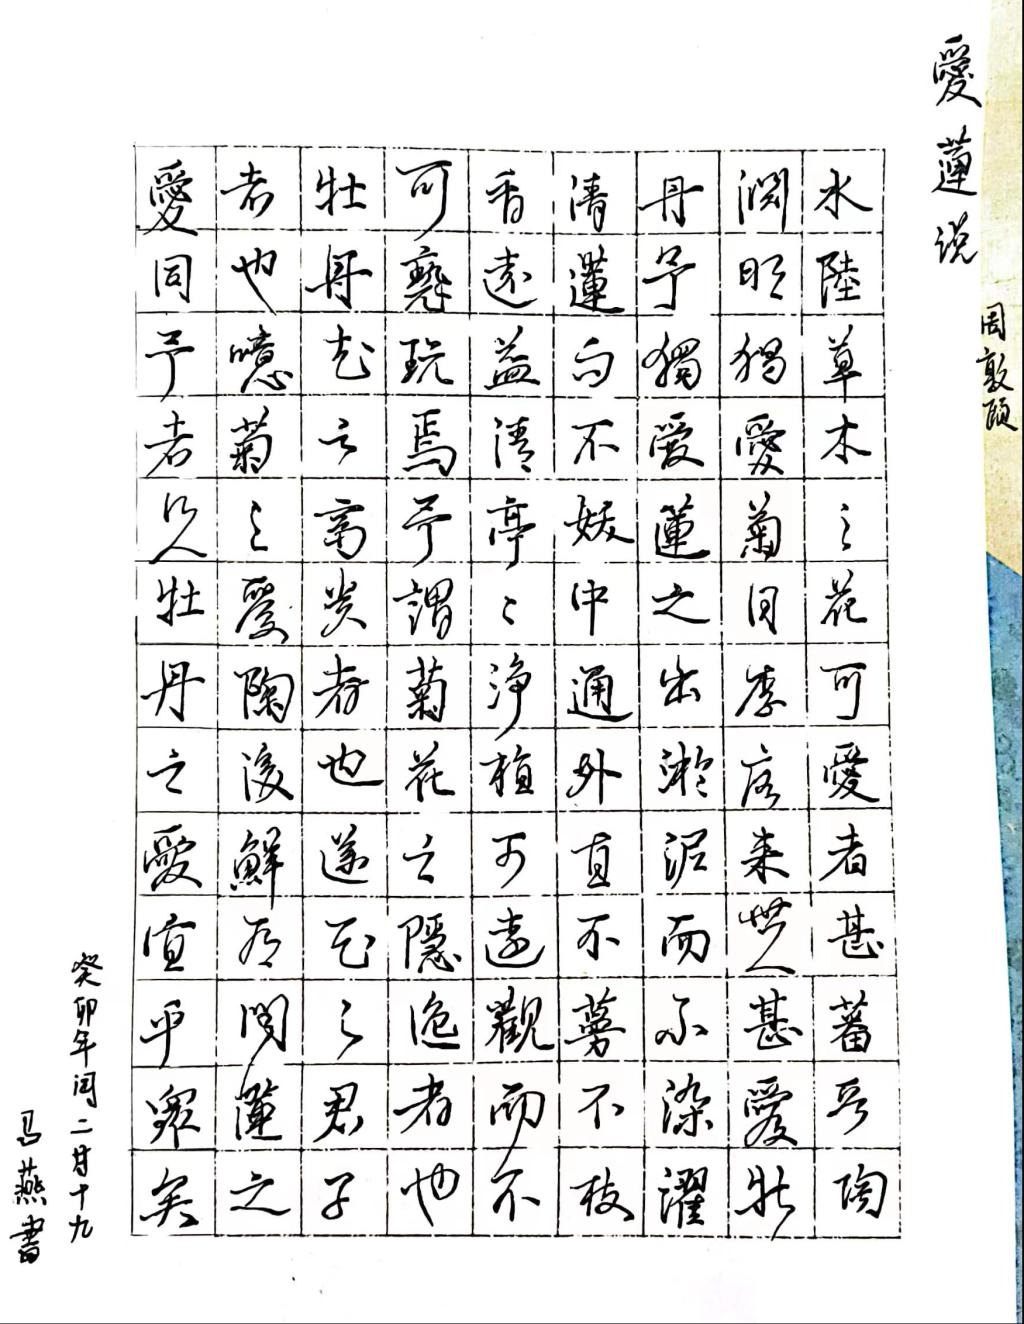 愛蓮说
周敦頤
水陸草木之花可愛者甚蕃晉陶
淵明獨愛菊自李唐来世人甚愛牡
丹予獨愛蓮之出淤泥而不染濯
清蓮而不妖中通外直不蔓不枝
香遠益清亭々淨植可遠觀而不
可褻玩焉予謂菊花之隱逸者也
牡丹花之富貴者也蓮花之君子
者也噫菊之愛陶後鮮有聞蓮之
愛同予者何人牡丹之愛宜乎衆矣
癸卯年闰二月十九
马燕書